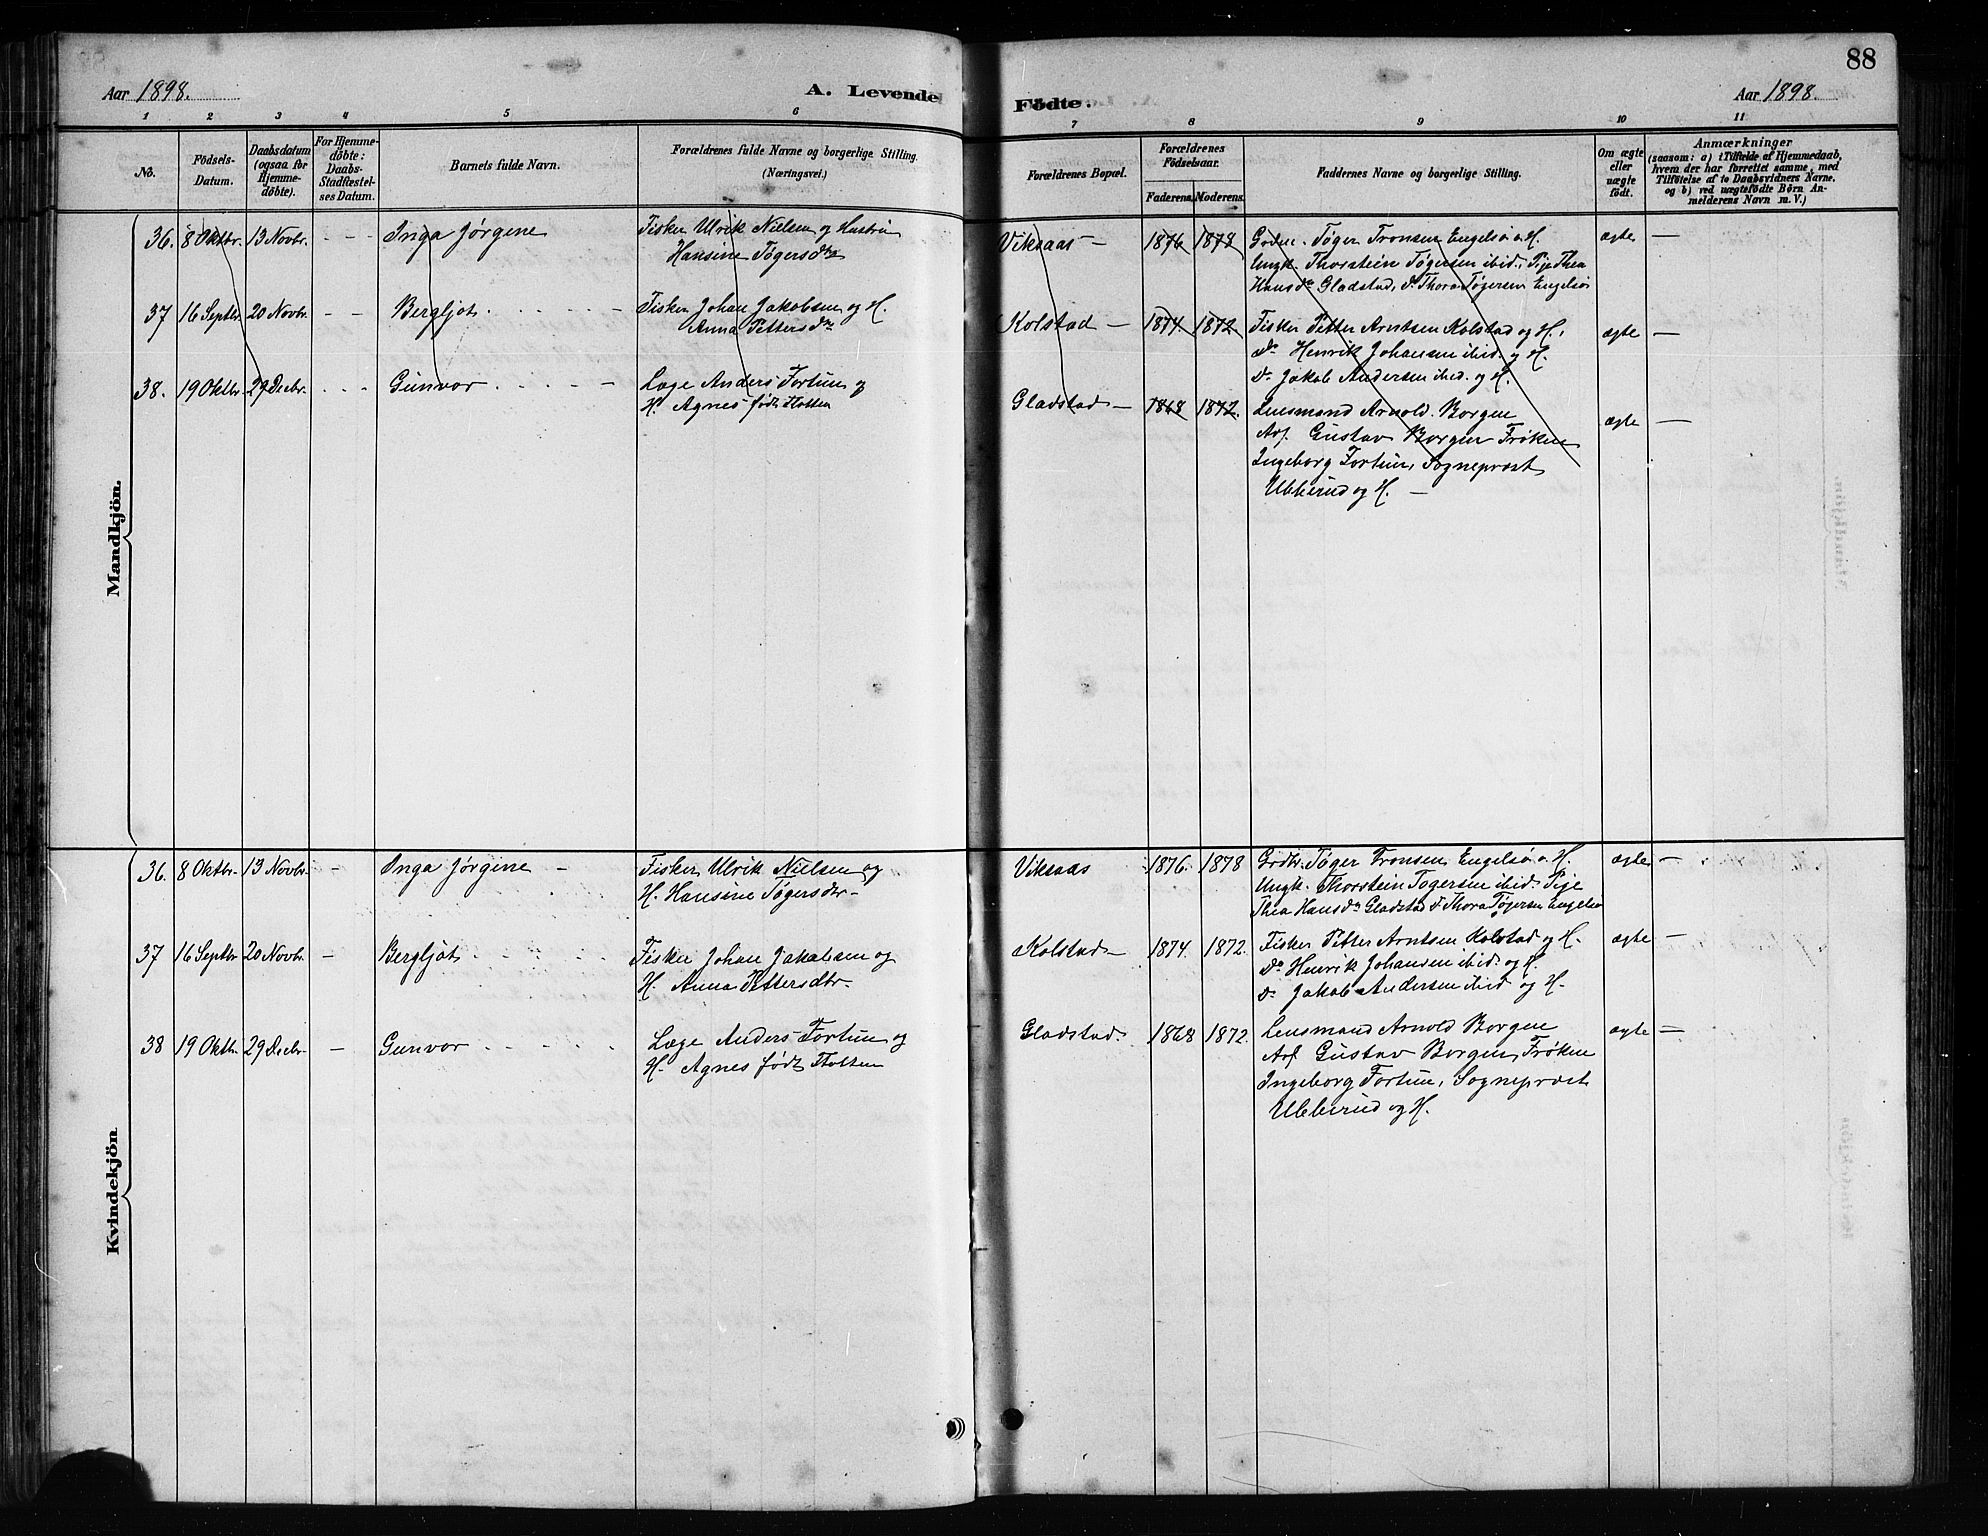 88
Aar 1898.
A. Levende Födte.
Aar 1898.
1 2 3 4 5 6 7 8 9 10 11
No.
Födsels-Datum.
Daabsdatum (ogsaa for Hjemmedöbte).
For Hjemmedöbte: Daabs-Stadfæstelses Datum.
Barnets fulde Navn.
Forældrenes fulde Navne og borgerlige Stilling. (Næringsvei.)
Forældrenes Bopæl.
Forældrenes Födselsaar.
Faderens. Moderens.
Faddernes Navne og borgerlige Stilling.
Om ægte eller uægte födt.
Anmærkninger
(saasom: a) i Tilfælde af Hjemmedaab, hvem der har forrettet samme, med Tilföielse af to Daabsvidners Navne, og b) ved uægtefödte Börn Anmelderens Navn m. V.)
Mandkjön.
36. 8 Oktbr. 13 Novbr. - - - Inga Jørgine Fisker Ulrik Nielsen og Hustru Viksaas - 1876 1878 Grdbr. Tøger Tronsen Engelsø o. H. ægte —
Hansine Tøgersdtr Ungk. Thorstein Tøgersen ibid. Pije Thea
Hansdtr Gladstad, do Thora Tøgersen Engelsø
37 16 Septbr. 20 Novbr. - - Bergljot. Fisker Johan Jakobsen og H. Kolstad - 1874 1872 Fisker Petter Arntsen Kolstad og H. ægte —
Anna Pettersdtr do Henrik Johansen ibid. og H.
Do Jakob Andersen ibid. og H.
38. 19 Oktbr. 29 Decbr. - - - Gunvor Læge Anders Fortun og Gladstad - 1868 1872. Lensmand Arnold Borgen ægte —
H. Agnes født Holten Arf. Gustav Borgen Frøken
Ingeborg Fortun, Sogneprest
Ubberud og H. -
Kvindekjön
36. 8 Oktbr. 13 Novbr. - Inga Jørgine - Fisker Ulrik Nielsen og Viksaas 1876. 1878 Grdbr. Tøger Tronsen Engelsø o. H. ægte —
H. Hansine Tøgersdtr. Ungk. Thorstein Tøgersen ibid. Pije
Thea Hansdtr Gladstad do Thora Tøgersen Engelsø
37 16 Septbr 20 Novbr. - Bergljot Fisker Johan Jakobsen og Kolstad - 1874. 1872. Fisker Petter Arntsen Kolstad og H. ægte —
H. Anna Pettersdtr. Do Henrik Johansen ibid. og H.
Do Jakob Andersen ibid og H.
38 19 Oktbr. 29 Decbr. - Gunvor Læge Anders Fortun og Gladstad. 1868 1872. Lensmand Arnold Borgen ægte —
H. Agnes født Holten Arf. Gustav Borgen, Frøken
Ingeborg Fortun, Sogneprest
Ubberud og H.